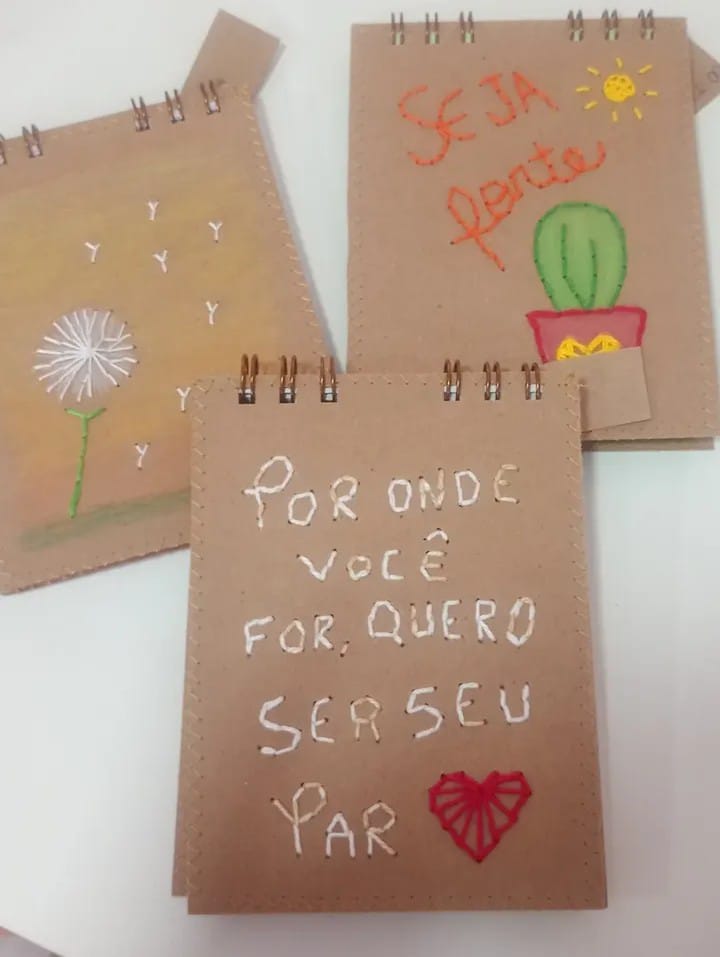 SEJA
forte
POR ONDE
VOCÊ
FOR, QUERO
SER SEU
PAR